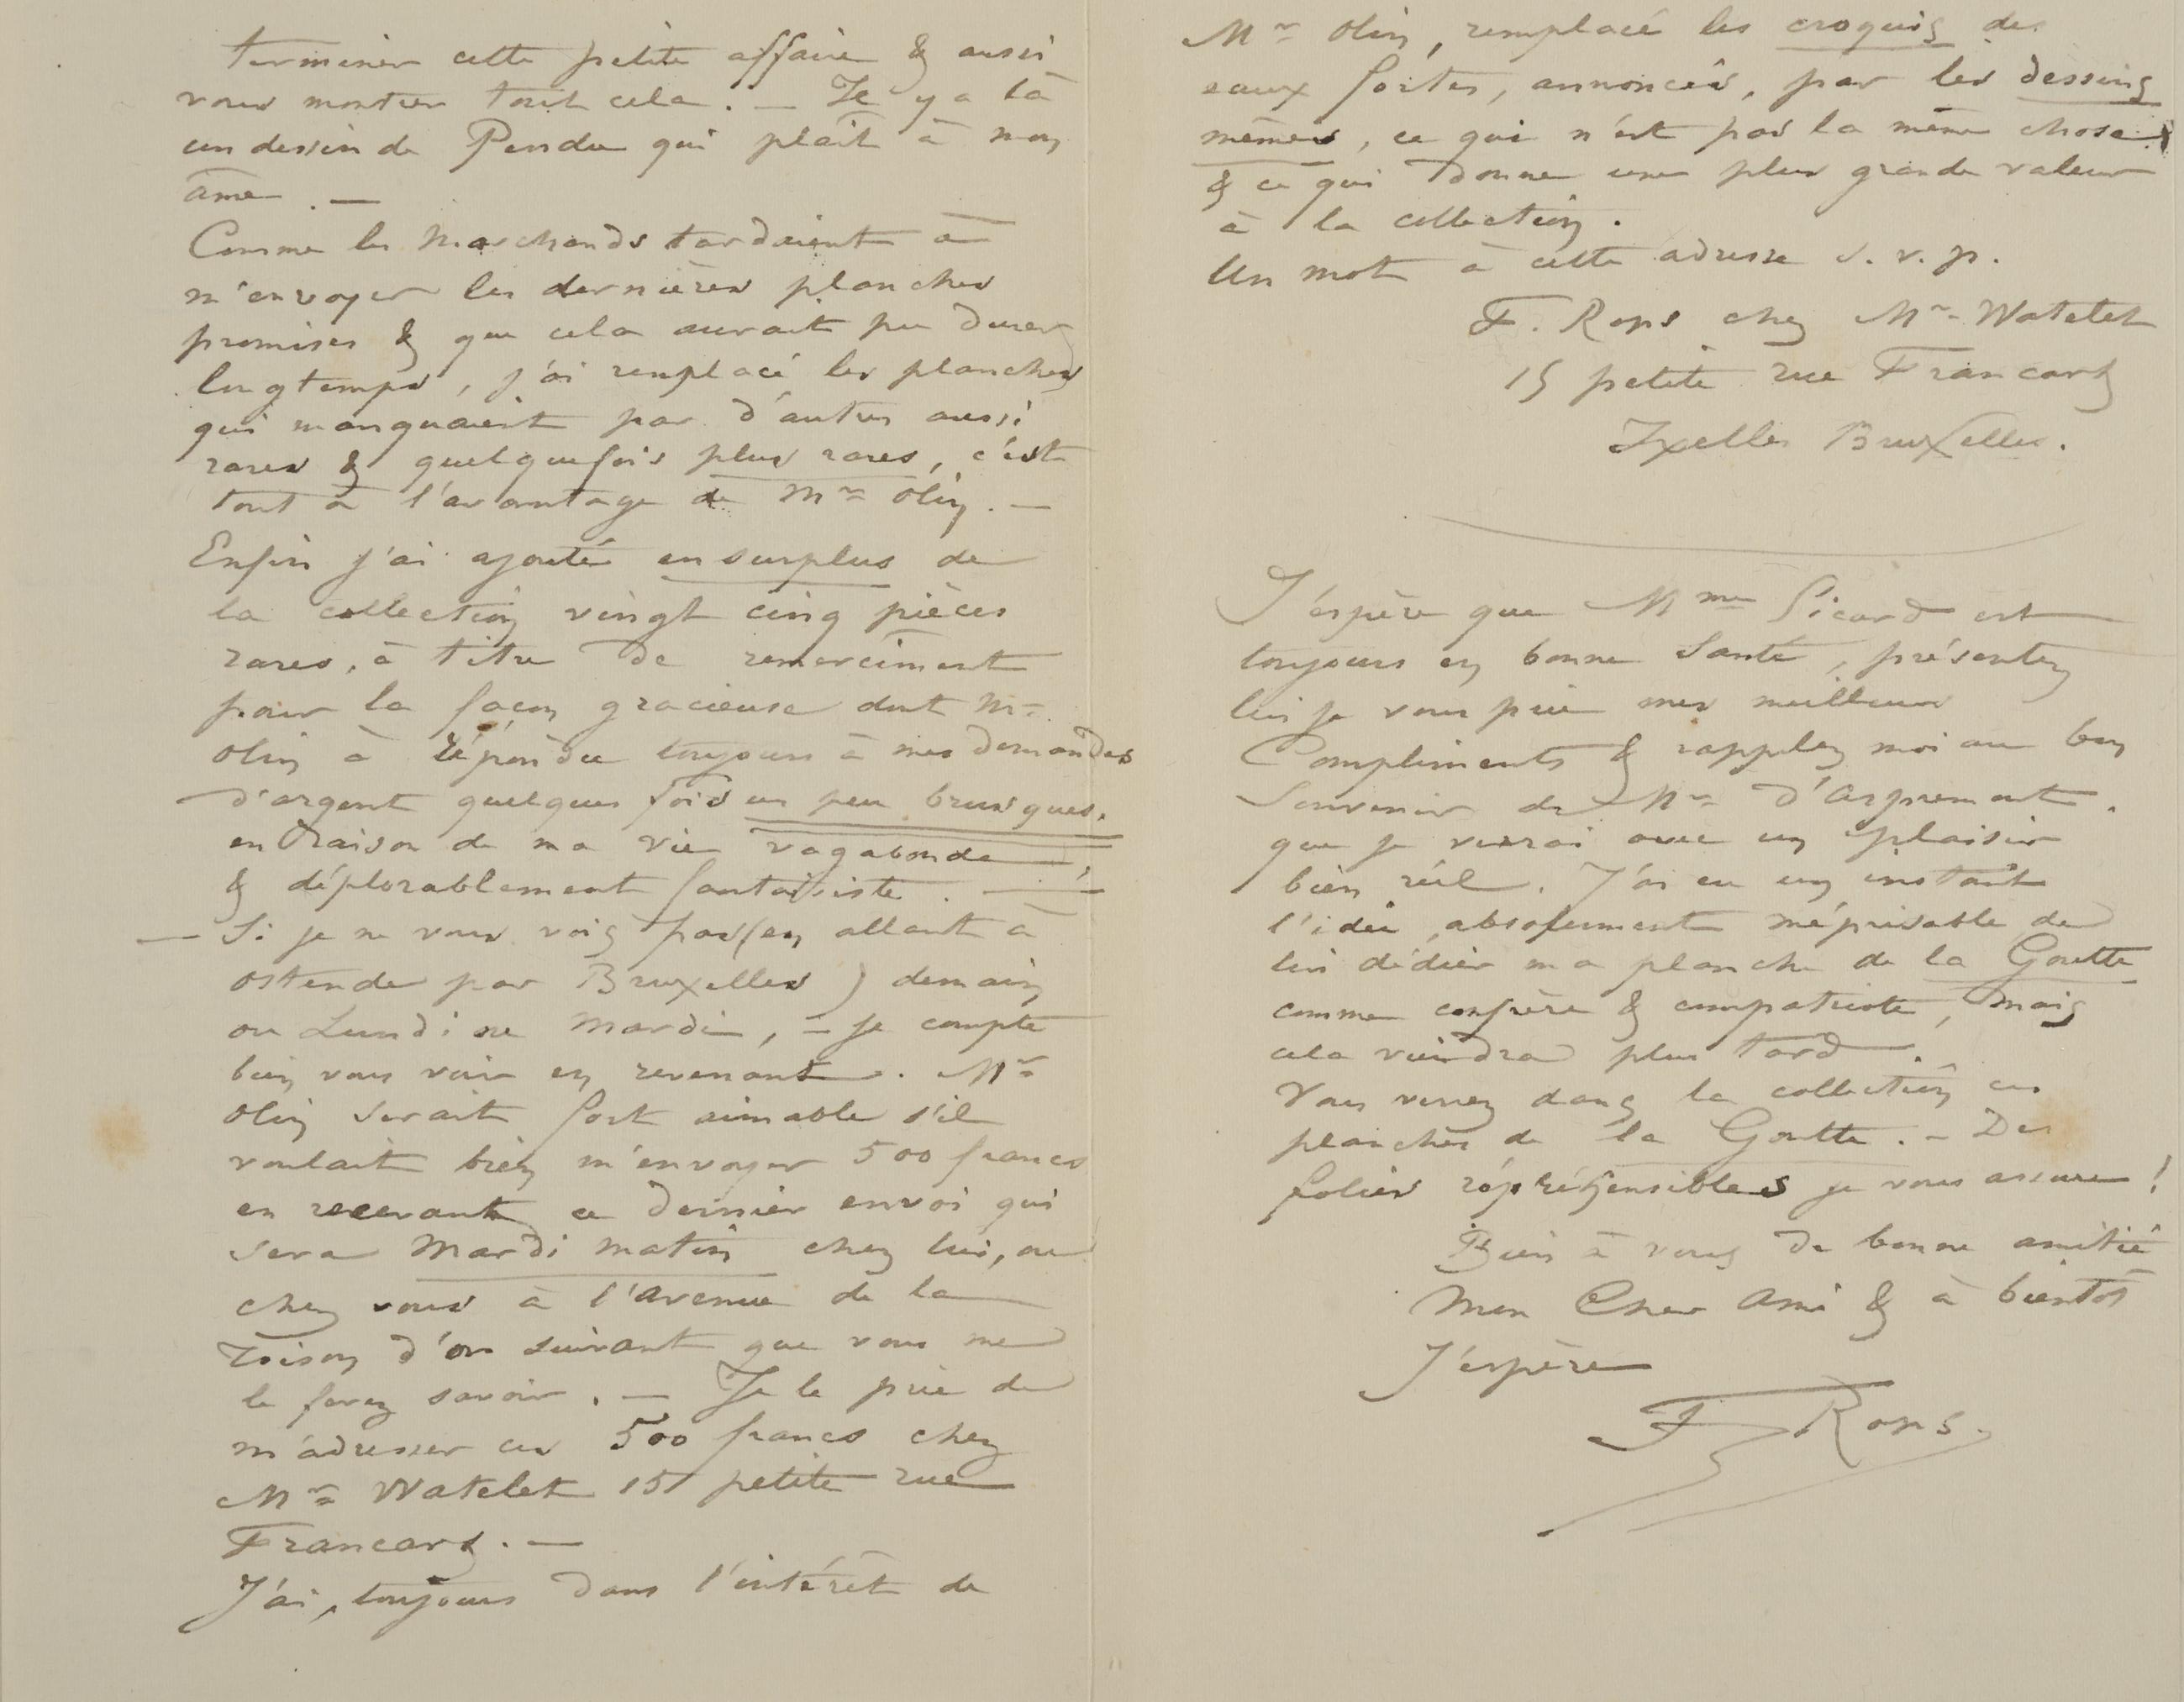 terminer cette petite affaire & aussi
vous montrer tout cela. — Il y a là
un dessin de Pendu qui plaît à mon
âme. —
Comme les Marchands tardaient à
m'envoyer les dernières planches
promises & que cela aurait pu durer
longtemps, j'ai remplacé les planches
qui manquaient par d'autres aussi
rares & quelquefois plus rares, c'est
tout à l'avantage de Mr Olin. —
Enfin j'ai ajouté en surplus de
la collection vingt cinq pièces
rares, à titre de remerciment
pour la façon gracieuse dont Mr
Olin à répondu toujours à mes demandes
d'argent quelques fois un peu brusques.
en raison de ma vie vagabonde
& déplorablement fantaisiste. —
— Si je ne vous vois pas (en allant à
Ostende par Bruxelles) demain
ou Lundi ou Mardi, — je compte
bien vous voir en revenant. Mr
Olin serait fort aimable s'il
voulait bien m'envoyer 500 francs
en recevant ce dernier envoi qui
sera Mardi matin chez lui, ou
chez vous à l'avenue de la
Toison d'or suivant que vous me
le ferez savoir. — Je le prie de
m'adresser ces 500 francs chez
Mr Watelet 15 petite rue
Francart. —
J'ai, toujours dans l'intérêt de
Mr Olin, remplacé les croquis des
eaux fortes, annoncés, par les dessins
mêmes, ce qui n'est pas la même chose,
& ce qui donne une plus grande valeur
à la collection.
Un mot à cette adresse s. v. p.
F. Rops chez Mr Watelet
15 petite rue Francart
Ixelles Bruxelles.
J'espère que Mme Picard est
toujours en bonne Santé, présentez
lui je vous prie mes meilleurs
Compliments & rappelez moi au bon
Souvenir de Mr d'Aspremont.
que je verrai avec un plaisir
bien réel. J'ai eu un instant
l'idée absolument méprisable de
lui dédier ma planche de la Goutte
comme confrère & compatriote, mais
cela viendra plus tard.
Vous verrez dans la collection ces
planches de la Goutte. — Des
folies répréhensibles je vous assure !
Bien à vous de bonne amitié
Mon Cher Ami & à bientôt
J'espère
F Rops.